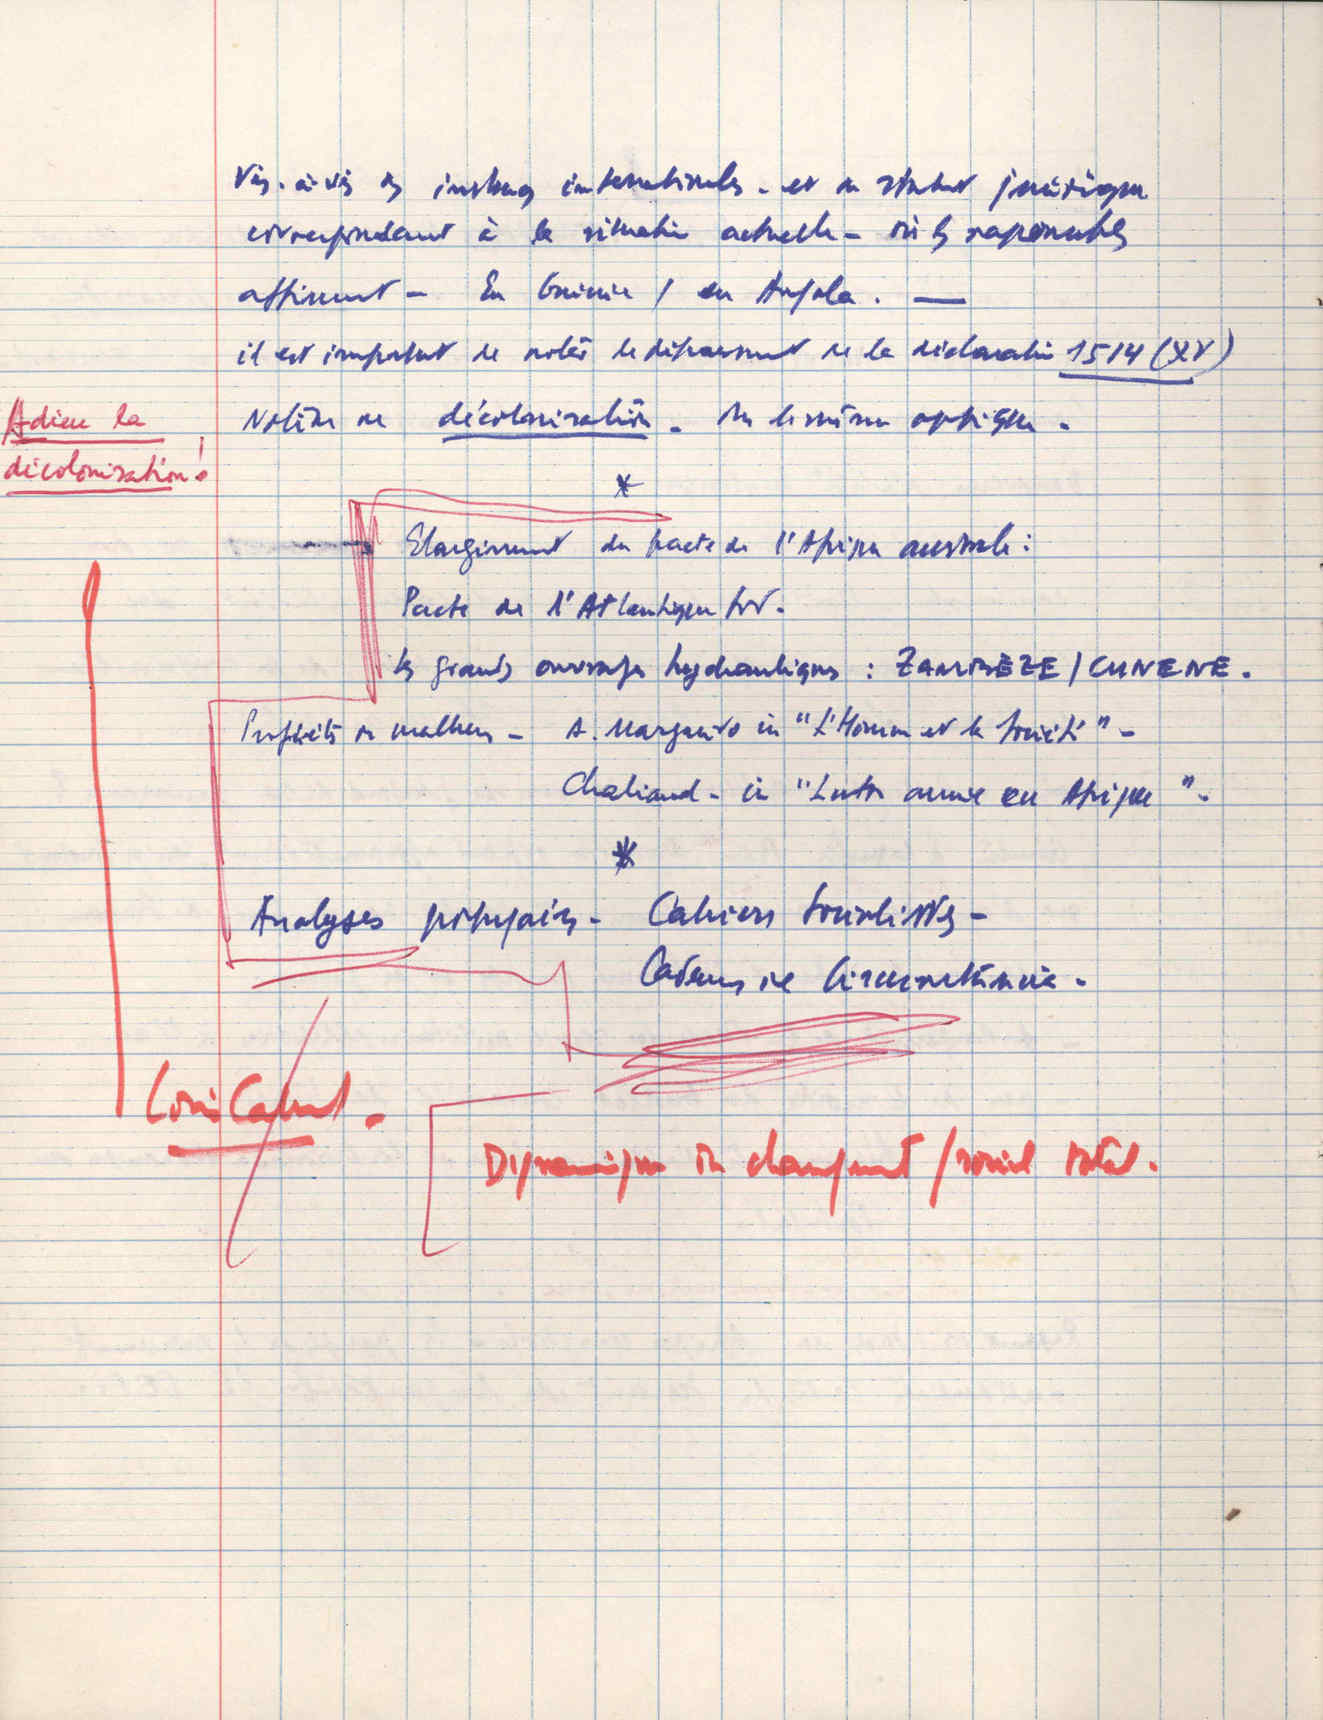 Vis-à-vis des instances internationales - et du statut juridique
correspondant à la situation actuelle - où les responsables
affirment - En Guinée / en Angola. —
il est important de noter le dépassement de la déclaration 1514 (XV)
Notion de décolonisation - même optique -
Adieu la
décolonisation !
*
Elargissement du pacte de l'Afrique australe :
Pacte de l'Atlantique Sud -
les grands ouvrages hydrauliques : ZAMBÈZE / CUNENE.
de malheur - A. Margarido in "L'Homme et la Société" -
Chaliand - in "Lutte armée en Afrique" -
*
Analyses - Cahiers Socialistes -
Cadernos de Circunstância -
Dynamique du changement / social total.